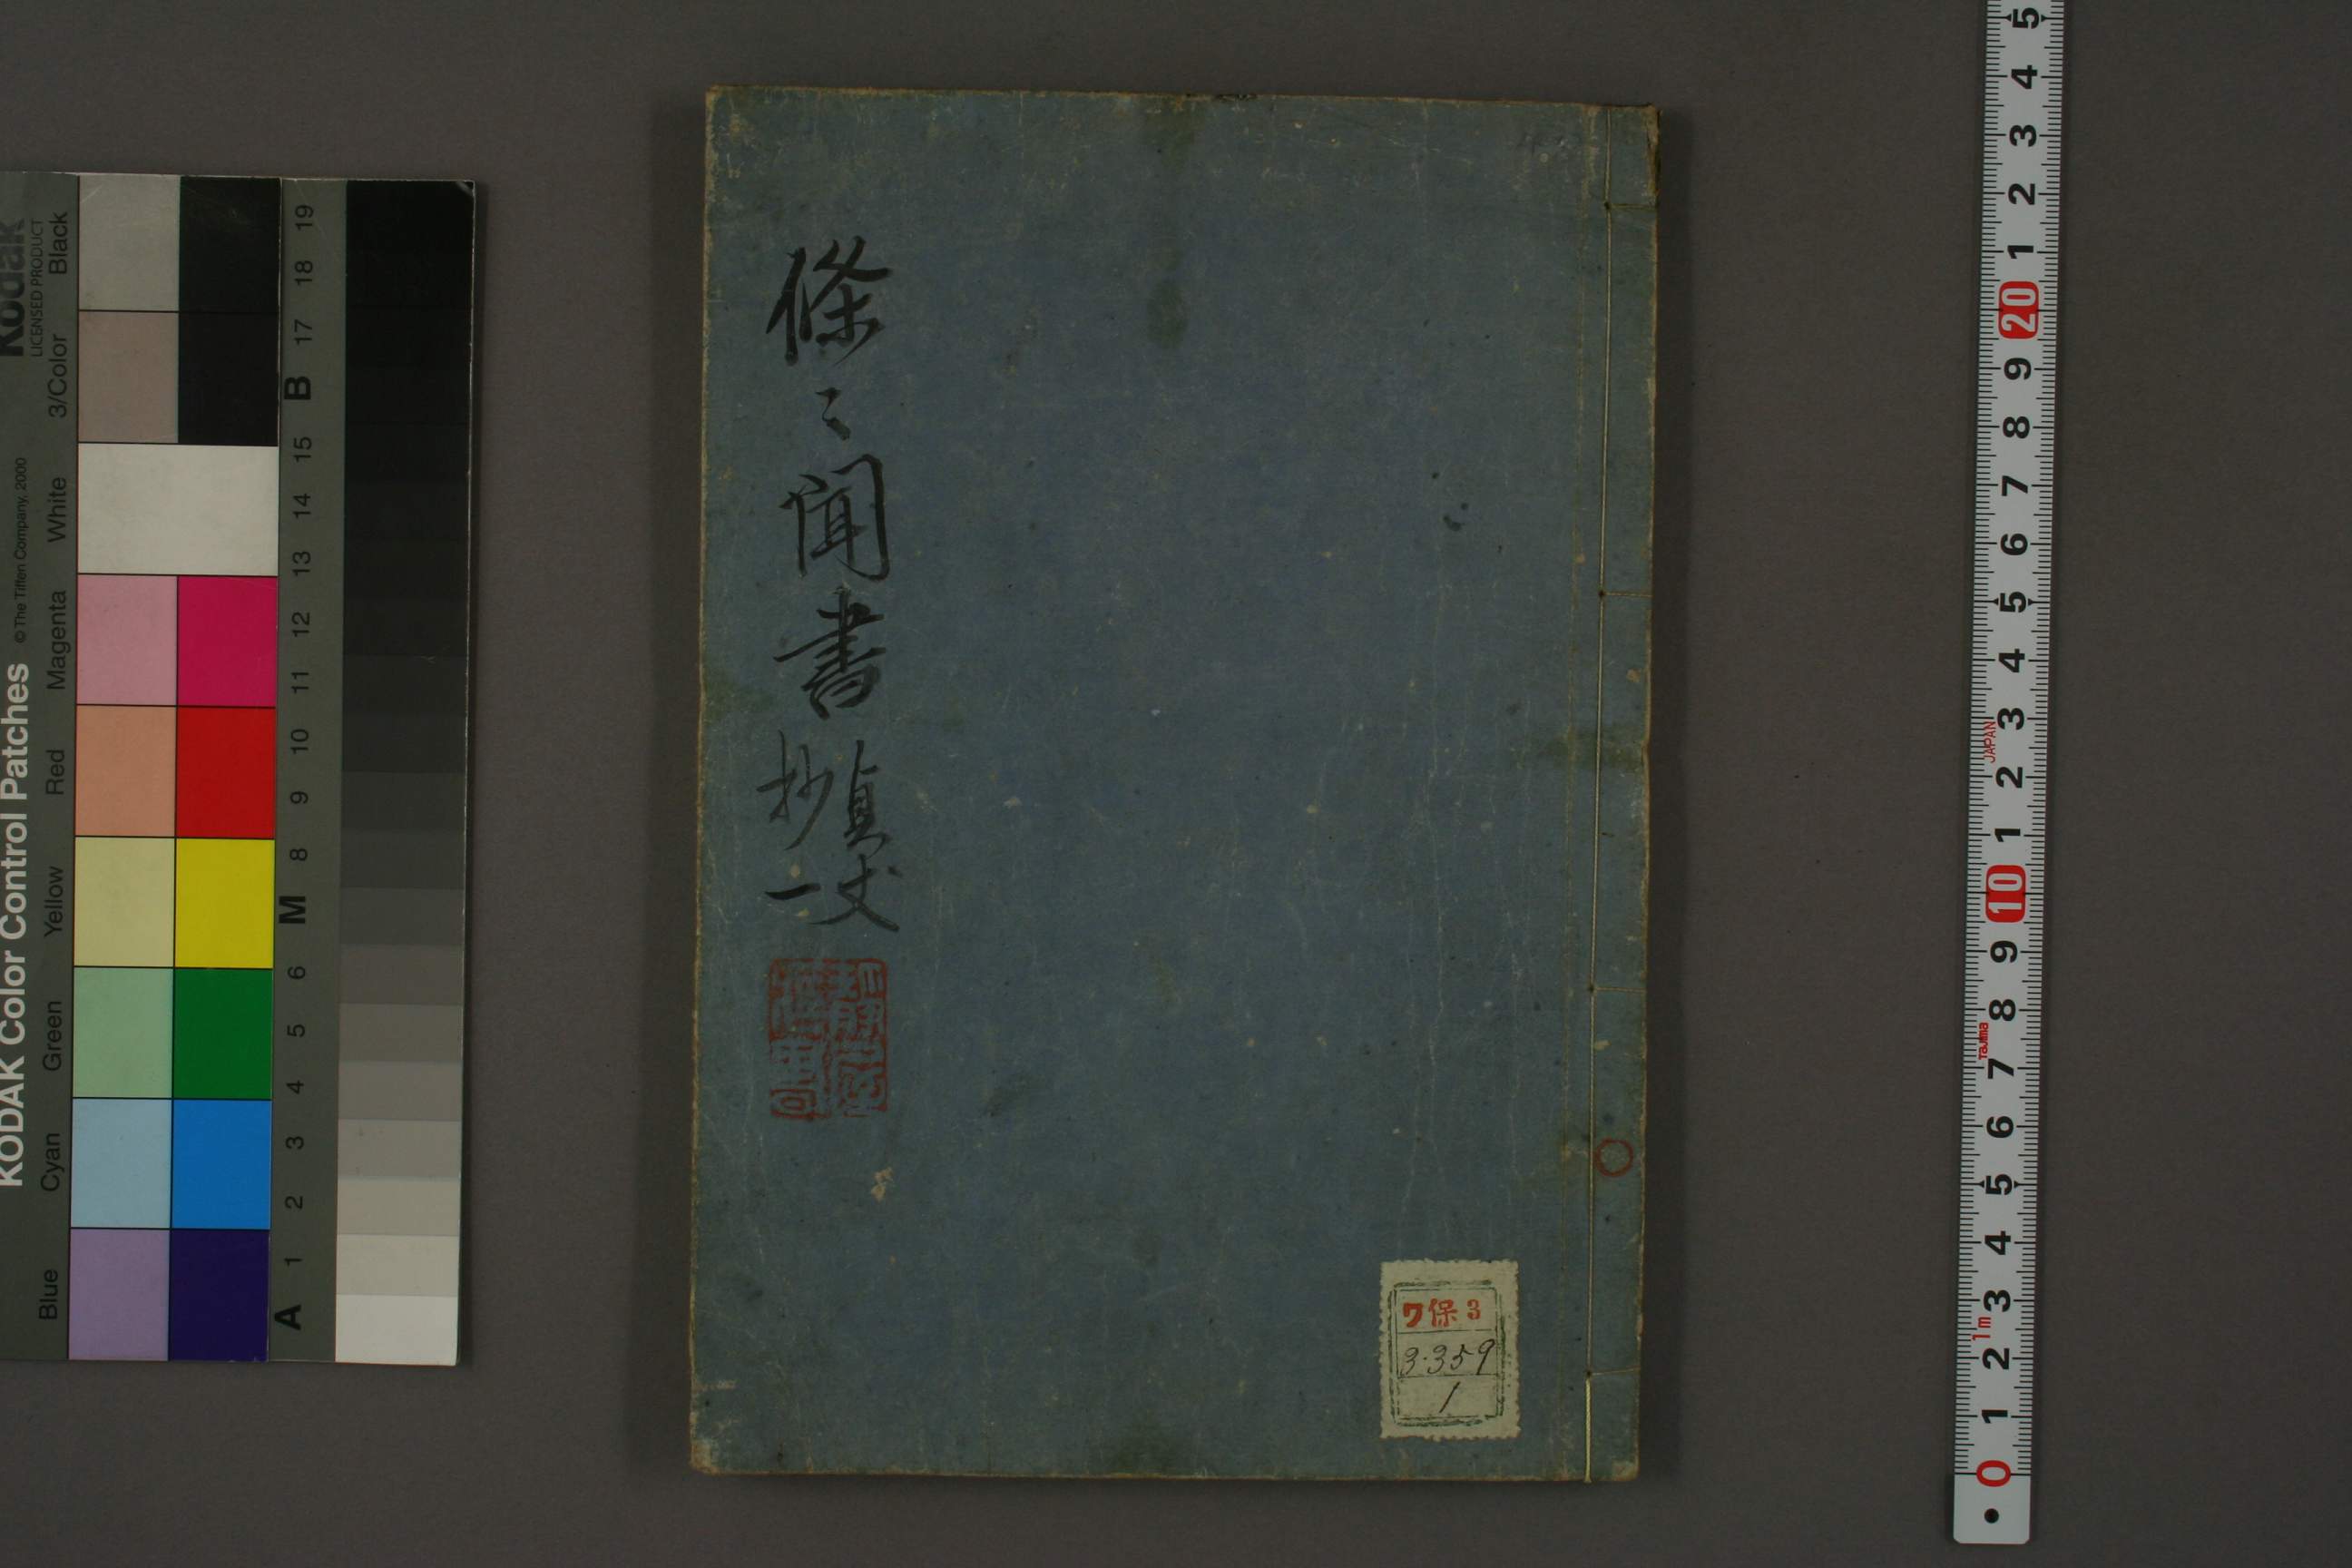 條々聞書 貞丈
抄一
ワ保3
3·359
1
Kodak
LICENSED PRODUCT
KODAK Color Control Patches © The Tiffen Company, 2000
Blue Cyan Green Yellow Red Magenta White 3/Color Black
A 1 2 3 4 5 6 M 8 9 10 11 12 13 14 15 B 17 18 19
0 1 2 3 4 5 6 7 8 9 10 1 2 3 4 5 6 7 8 9 20 1 2 3 4 5
1m
Tajima
JAPAN